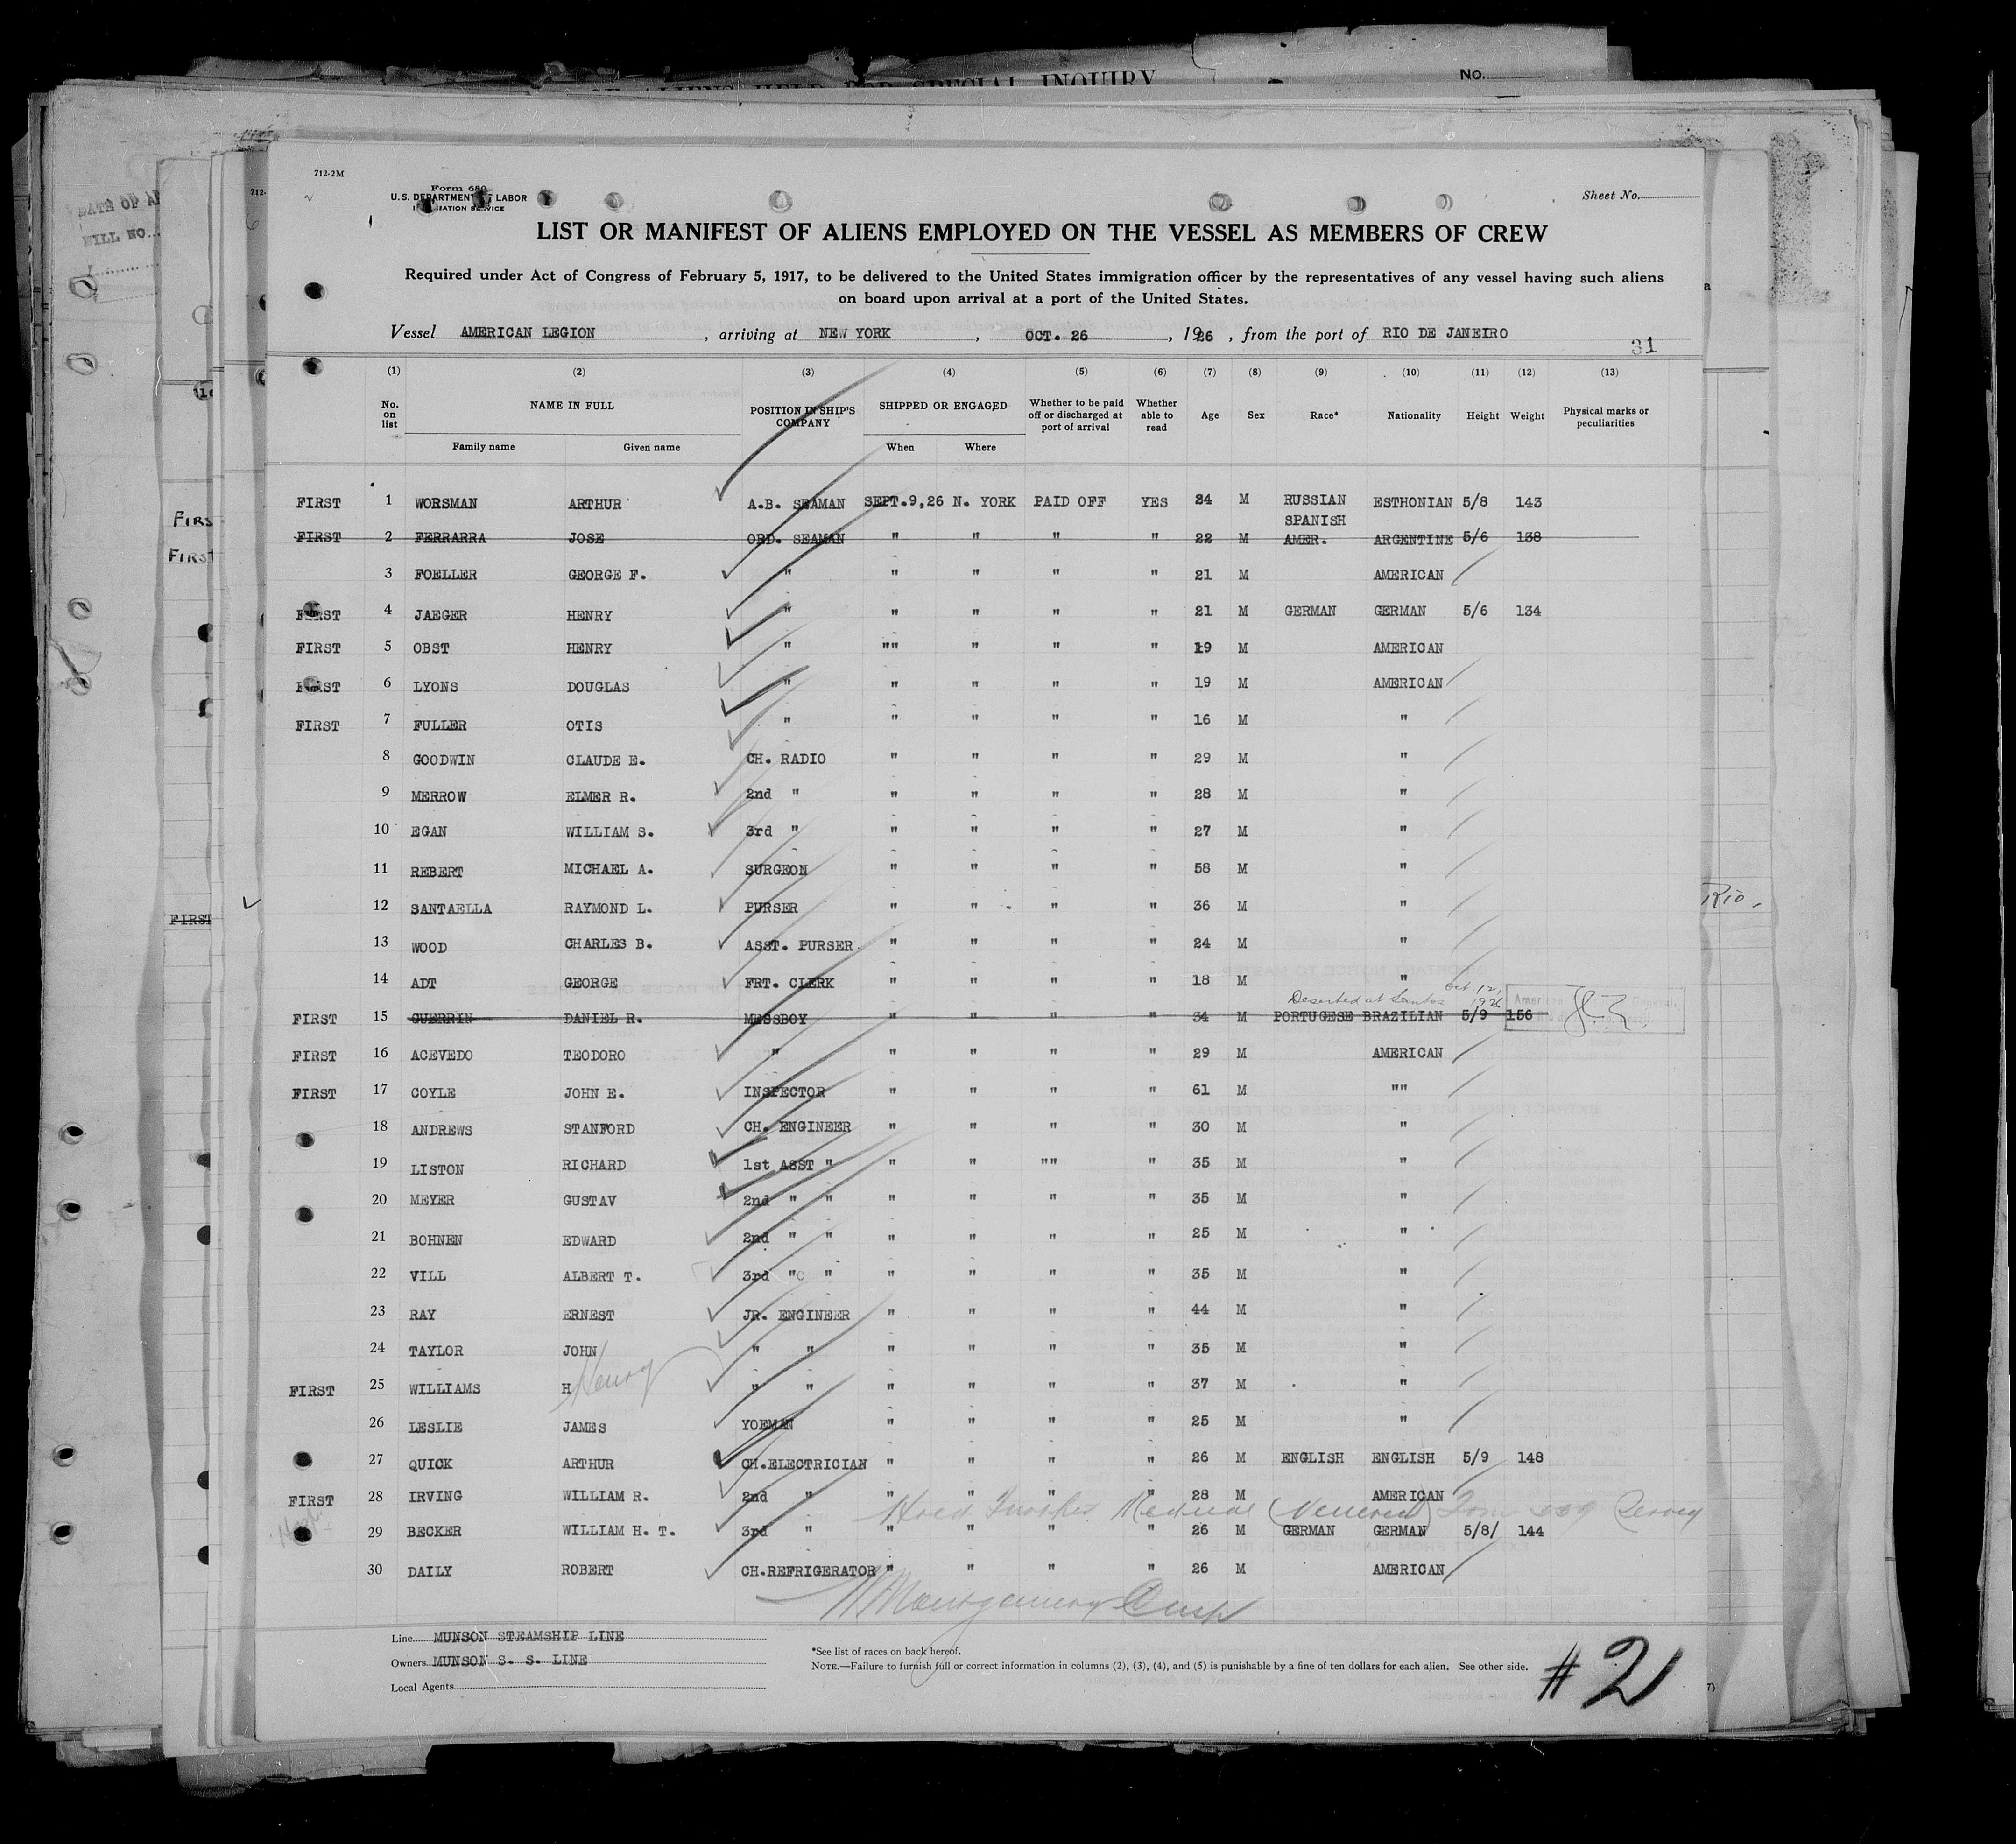 OF ALIENS HELD FOR SPECIAL INQUIRY
No.
712-2M
Form 680
U.S. DEPARTMENT OF LABOR
Sheet No.
LIST OR MANIFEST OF ALIENS EMPLOYED ON THE VESSEL AS MEMBERS OF CREW
Required under Act of Congress of February 5, 1917, to be delivered to the United States immigration officer by the representatives of any vessel having such aliens
on board upon arrival at a port of the United States.
Vessel AMERICAN LEGION, arriving at NEW YORK, OCT. 26, 1926, from the port of RIO DE JANEIRO
31
(1) (2) (3) (4) (5) (6) (7) (8) (9) (10) (11) (12) (13)
No. on list NAME IN FULL Family name Given name POSITION IN SHIP'S COMPANY SHIPPED OR ENGAGED When Where Whether to be paid off or discharged at port of arrival Whether able to read Age Sex Race* Nationality Height Weight Physical marks or peculiarities
FIRST 1 WORSMAN ARTHUR A.B. SEAMAN SEPT.9,26 N. YORK PAID OFF YES 24 M RUSSIAN ESTHONIAN 5/8 143
FIRST 2 FERRARRA JOSE ORD. SEAMAN " " " " 22 M SPANISH AMER. ARGENTINE 5/6 138
3 FOELLER GEORGE F. " " " " " 21 M AMERICAN
FIRST 4 JAEGER HENRY " " " " " 21 M GERMAN GERMAN 5/6 134
FIRST 5 OBST HENRY " "" " " " 19 M AMERICAN
FIRST 6 LYONS DOUGLAS " " " " " 19 M AMERICAN
FIRST 7 FULLER OTIS " " " " " 16 M "
8 GOODWIN CLAUDE E. CH. RADIO " " " " 29 M "
9 MERROW ELMER R. 2nd " " " " " 28 M "
10 EGAN WILLIAM S. 3rd " " " " " 27 M "
11 REBERT MICHAEL A. SURGEON " " " " 58 M "
12 SANTAELLA RAYMOND L. PURSER " " " " 36 M "
13 WOOD CHARLES B. ASST. PURSER " " " " 24 M "
14 ADT GEORGE FRT. CLERK " " " " 18 M "
Deserted at Santos Oct. 12, 1926
FIRST 15 GUERRIN DANIEL R. MESSBOY " " " " 34 M PORTUGESE BRAZILIAN 5/9 156
FIRST 16 ACEVEDO TEODORO " " " " " 29 M AMERICAN
FIRST 17 COYLE JOHN E. INSPECTOR " " " " 61 M ""
18 ANDREWS STANFORD CH. ENGINEER " " " " 30 M "
19 LISTON RICHARD 1st ASST " " " "" " 35 M "
20 MEYER GUSTAV 2nd " " " " " " 35 M "
21 BOHNEN EDWARD 2nd " " " " " " 25 M "
22 VILL ALBERT T. 3rd " " " " " " 35 M "
23 RAY ERNEST JR. ENGINEER " " " " 44 M "
24 TAYLOR JOHN " " " " " " 35 M "
FIRST 25 WILLIAMS H Henry " " " " " " 37 M "
26 LESLIE JAMES YOEMAN " " " " 25 M "
27 QUICK ARTHUR CH.ELECTRICIAN " " " " 26 M ENGLISH ENGLISH 5/9 148
FIRST 28 IRVING WILLIAM R. 2nd " " " " " 28 M AMERICAN
29 BECKER WILLIAM H. T. 3rd " " " " " 26 M GERMAN GERMAN 5/8/ 144
30 DAILY ROBERT CH.REFRIGERATOR " " " " 26 M AMERICAN
Line MUNSON STEAMSHIP LINE
Owners MUNSON S. S. LINE
Local Agents
*See list of races on back hereof.
NOTE.—Failure to furnish full or correct information in columns (2), (3), (4), and (5) is punishable by a fine of ten dollars for each alien. See other side.
#2
FIRST
FIRST
FIRST
Rio.